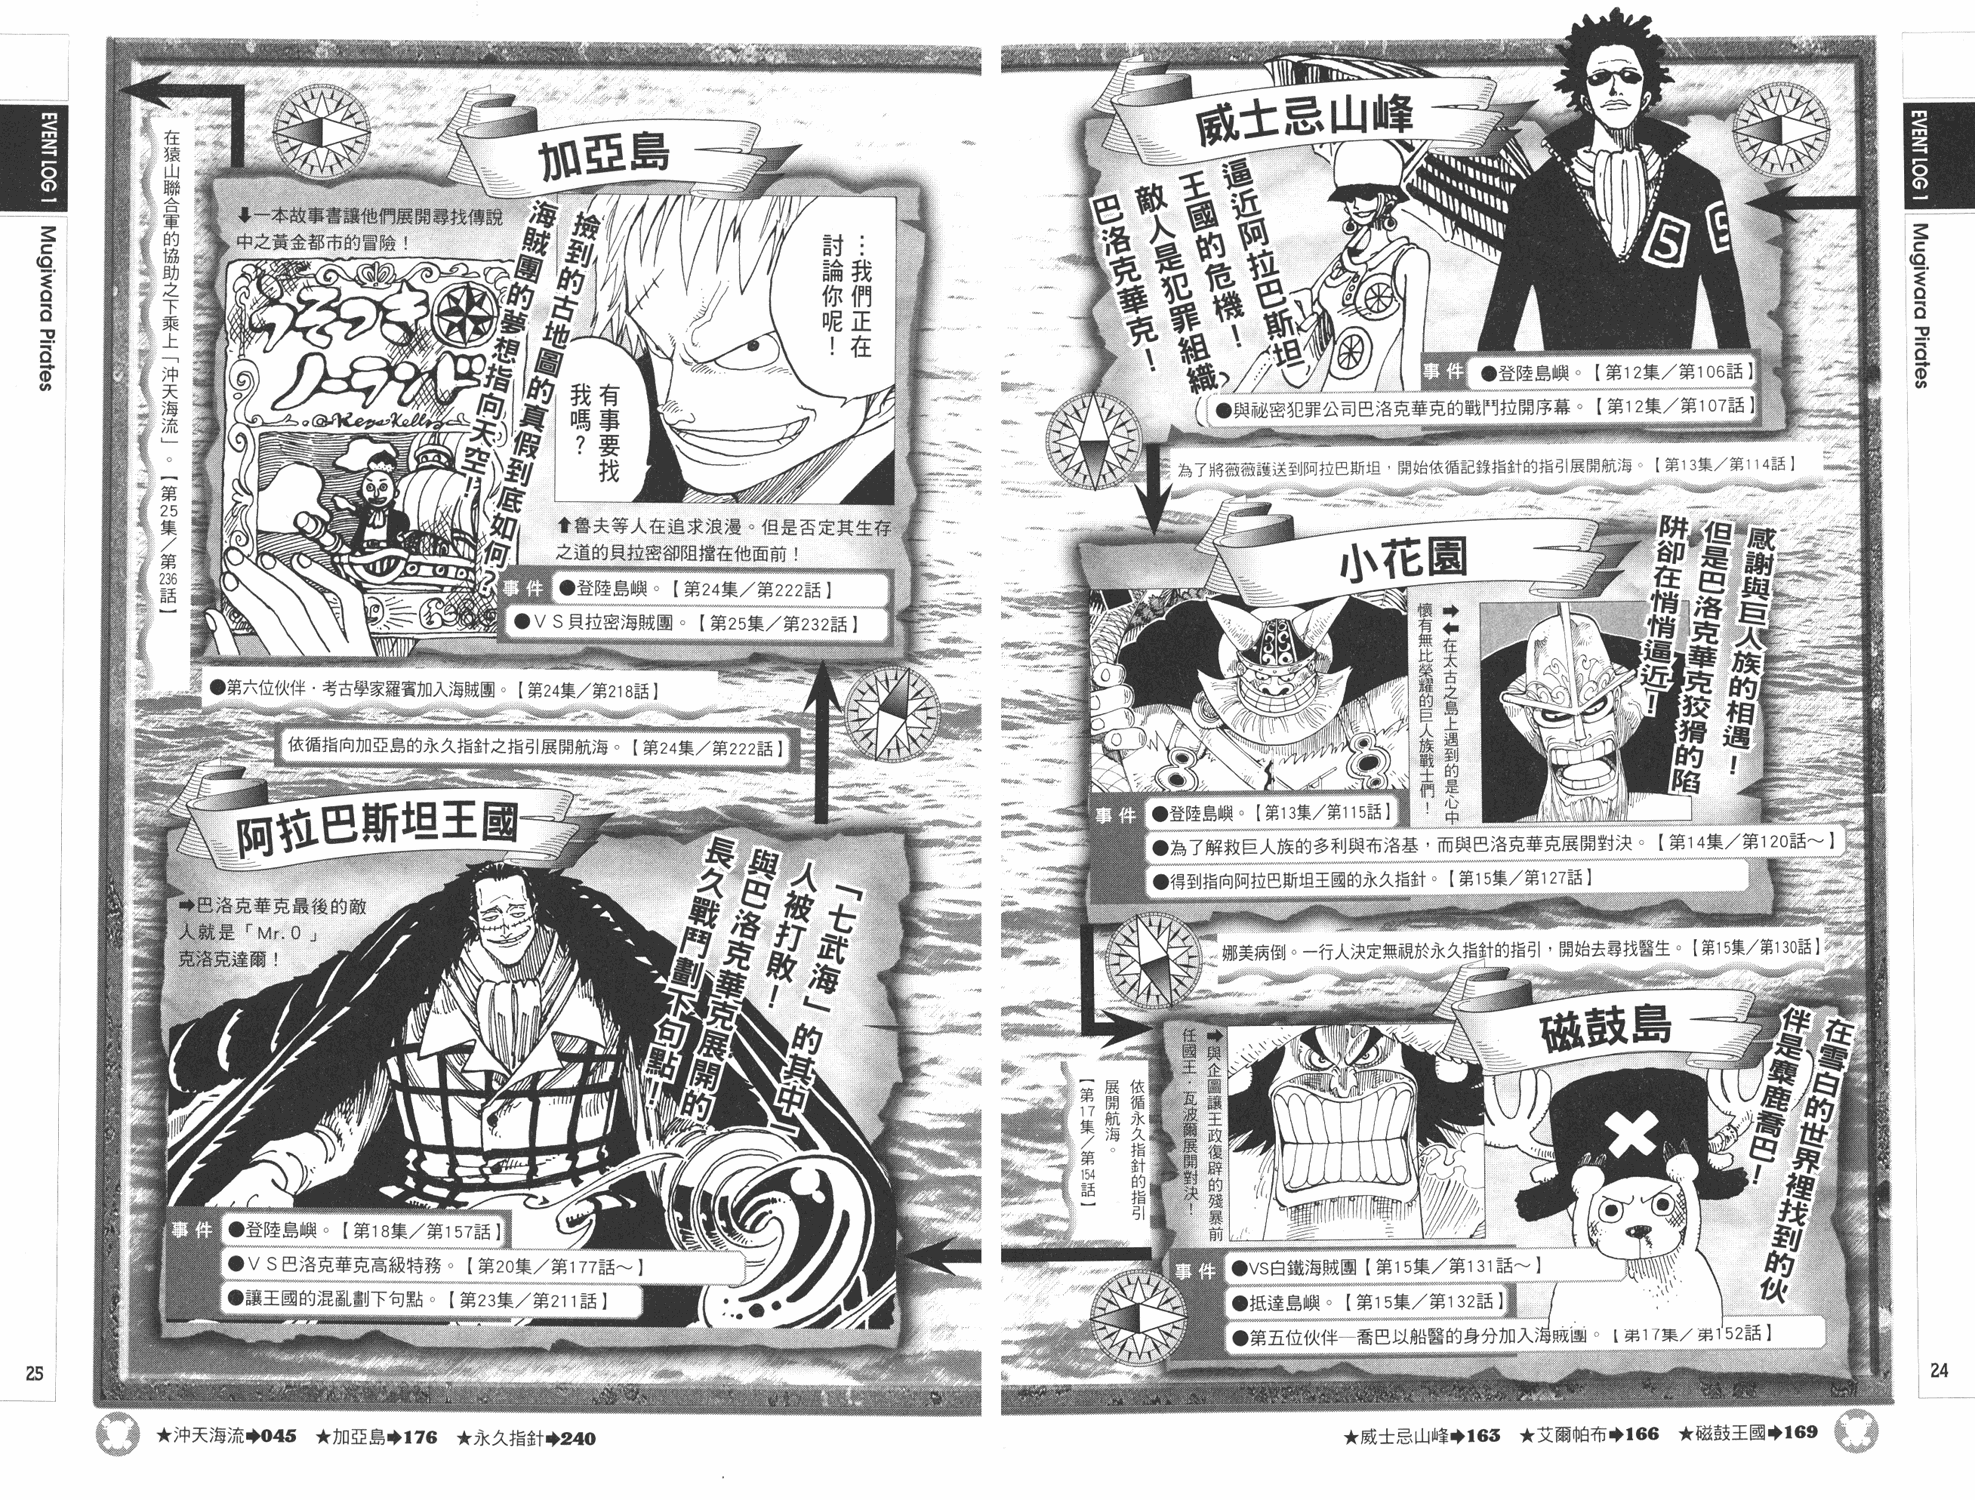 EVENT LOG 1
Mugiwara Pirates
威士忌山峰
逼近阿拉巴斯坦
王國的危機！
敵人是犯罪組織
巴洛克華克！
5
5
事件
●登陸島嶼。【第12集／第106話】
●與祕密犯罪公司巴洛克華克的戰鬥拉開序幕。【第12集／第107話】
為了將薇薇護送到阿拉巴斯坦，開始依循記錄指針的指引展開航海。【第13集／第114話】
小花園
感謝與巨人族的相遇！
但是巴洛克華克狡猾的陷
阱卻在悄悄逼近！
➡⬅在太古之島上遇到的是心中
懷有無比榮耀的巨人族戰士們！
事件
●登陸島嶼。【第13集／第115話】
●為了解救巨人族的多利與布洛基，而與巴洛克華克展開對決。【第14集／第120話～】
●得到指向阿拉巴斯坦王國的永久指針。【第15集／第127話】
娜美病倒。一行人決定無視於永久指針的指引，開始去尋找醫生。【第15集／第130話】
磁鼓島
在雪白的世界裡找到的伙
伴是麋鹿喬巴！
➡與企圖讓王政復辟的殘暴前
任國王．瓦波爾展開對決！
事件
●VS白鐵海賊團【第15集／第131話～】
●抵達島嶼。【第15集／第132話】
●第五位伙伴─喬巴以船醫的身分加入海賊團。【第17集／第152話】
依循永久指針的指引
展開航海。
【第17集／第154話】
24
★威士忌山峰➡163 ★艾爾帕布➡166 ★磁鼓王國➡169
EVENT LOG 1
Mugiwara Pirates
阿拉巴斯坦王國
「七武海」的其中一
人被打敗！
與巴洛克華克展開的
長久戰鬥劃下句點！
➡巴洛克華克最後的敵
人就是「Mr.０」
克洛克達爾！
事件
●登陸島嶼。【第18集／第157話】
●ＶＳ巴洛克華克高級特務。【第20集／第177話～】
●讓王國的混亂劃下句點。【第23集／第211話】
依循指向加亞島的永久指針之指引展開航海。【第24集／第222話】
●第六位伙伴．考古學家羅賓加入海賊團。【第24集／第218話】
加亞島
撿到的古地圖的真假到底如何？
海賊團的夢想指向天空！
⬇一本故事書讓他們展開尋找傳說
中之黃金都市的冒險！
うそつき
ノーランド
…我們正在
討論你呢！
有事要找
我嗎？
⬆魯夫等人在追求浪漫。但是否定其生存
之道的貝拉密卻阻擋在他面前！
事件
●登陸島嶼。【第24集／第222話】
●ＶＳ貝拉密海賊團。【第25集／第232話】
在猿山聯合軍的協助之下乘上「沖天海流」。【第25集／第236話】
25
★沖天海流➡045 ★加亞島➡176 ★永久指針➡240